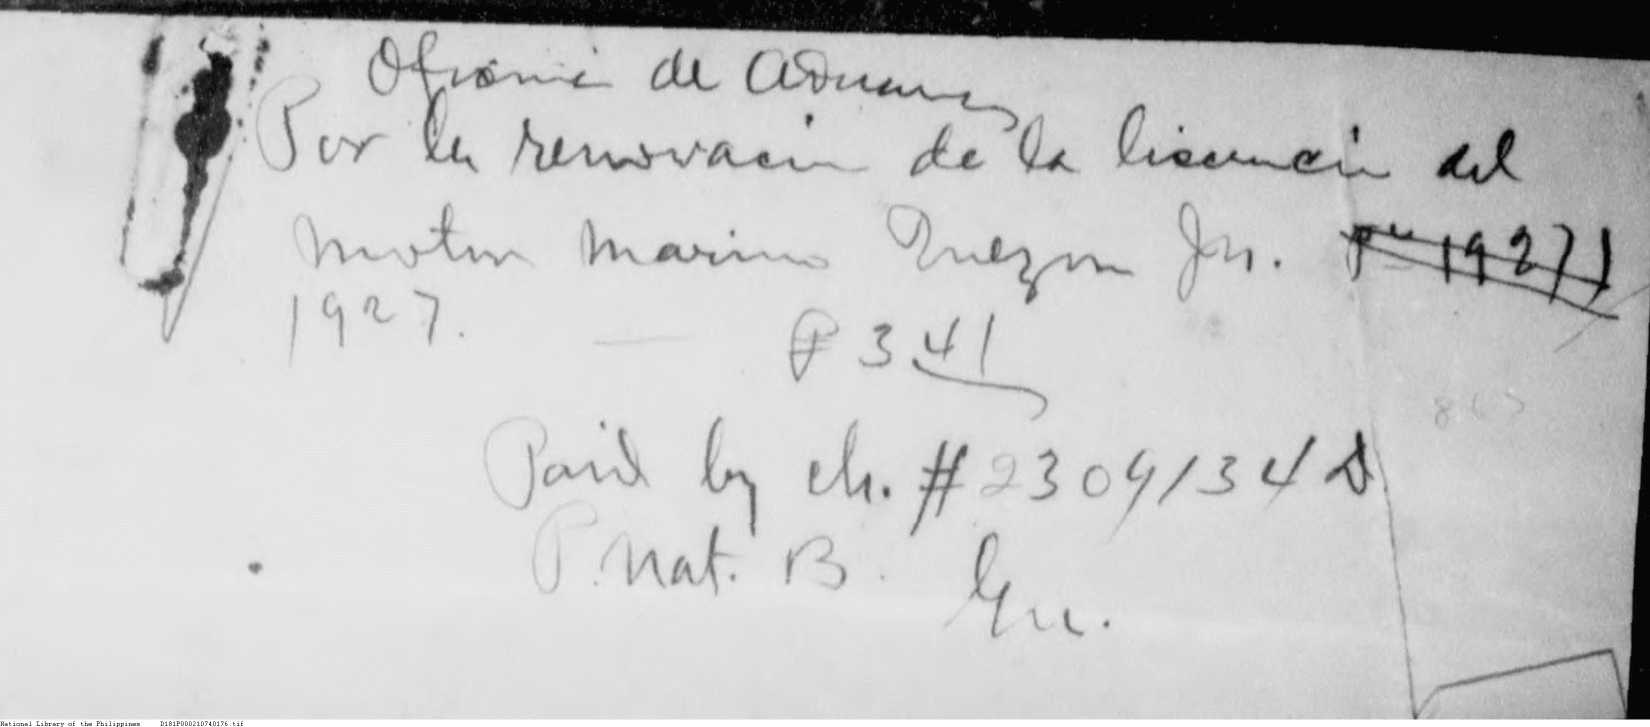 Oficina de Aduanas
Por la renovacion de la liscencia del
motor Marino Quezon Jr.
1927.
₱341
Paid by ch. #2309134 D
P. Nat. B.
National Library of the Philippines D181P000210740176.tif